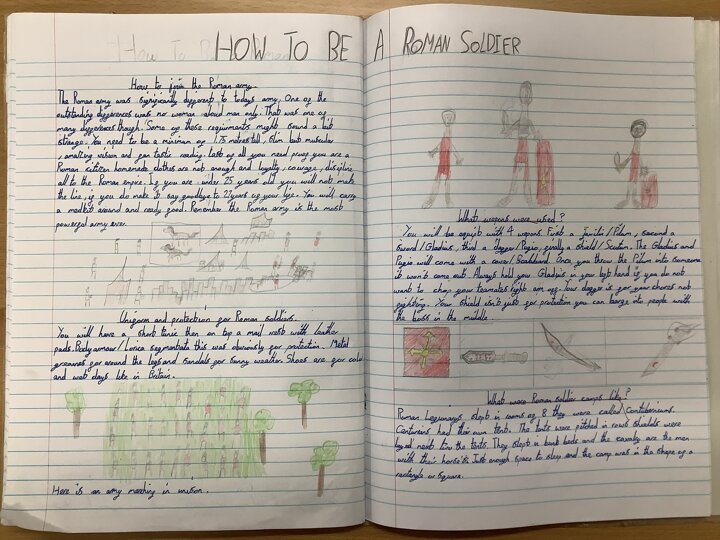 HOW TO BE A ROMAN SOLDIER
How to join the Roman army.
The Roman army was significantly different to todays army. One of the
outstanding differences was no woman about men only. That was one of
many differences though. Some of these requirments might sound a bit
strange. You need to be a minimum of 1.75 metres tall, Slim but muscular
, amazing vision and fan tastic reading. Last of all you need prove you are a
Roman citizen homemade clothes are not enough and loyalty, courage, discipline
all to the Roman empire. If you are under 25 years old you will not make
the live, if you do make it say goodbye to 27 years of your life. You will carry
a around and ready food. Remember the Roman army is the most
powerful army ever.
Uniform and protection for Roman soldiers.
You will have a short tunic then on top a mail vest with leather
pads. Body armour/Lorica segmentata this was obviously for protection. Metal
greaves for around the legs and sandals for sunny weather. Shoes are for cold
and wet days like in Britain.
Here is an army marching in unison.
What weapons were used?
You will be equipt with 4 wepons. First a Javilin/Pilum, second a
Sword/Gladius, third a Dagger/Pugio, finally a Shield/Scutum. The Gladius and
Pugio will come with a cover/Scabbard. Once you throw the Pilum into someone
it won't come out. Always hold your Gladius in your left hand if you do not
want to chop your teamates right arm off. Your dagger is for your chores not
fighting. Your shield isn't just for protection you can barge into people with
the boss in the middle.
What were Roman soldier camps like?
Roman Legionarys slept in rooms of 8 they were called Contuberniums.
Centurions had their own tents. The tents were pitched in rows shields were
layed next tiw the tents. They slept in bunk beds and the cavalry are the men
with their horse's. Just enough space to sleep and the camp was in tha shape of a
rectangle or Square.